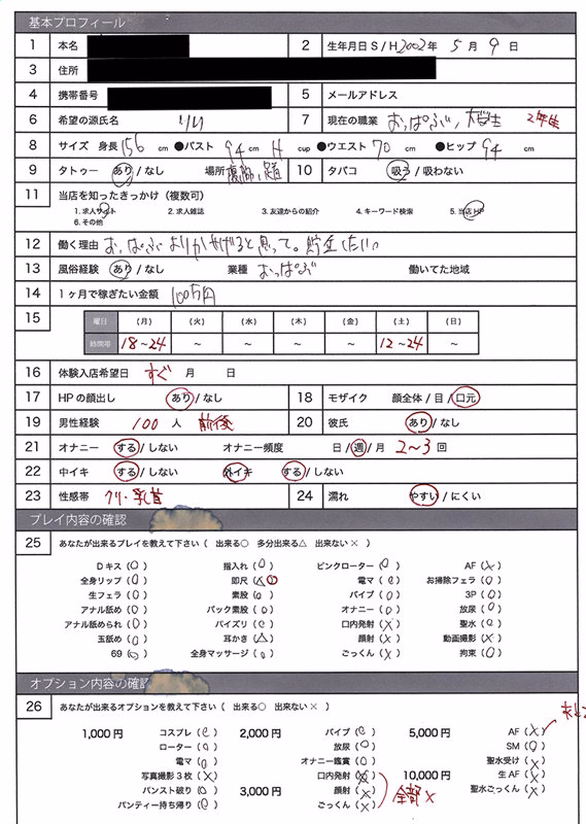 基本プロフィール
1 本名 2 生年月日 S / H 2002年 5月 9日
3 住所
4 携帯番号 5 メールアドレス
6 希望の源氏名 りり 7 現在の職業 おっぱぶ 2年生
8 サイズ 身長 156 cm ●バスト 94 cm H cup ●ウエスト 70 cm ●ヒップ 94 cm
9 タトゥー あり / なし 場所 10 タバコ 吸う / 吸わない
11 当店を知ったきっかけ（複数可）
1. 求人サイト 2. 求人雑誌 3. 友達からの紹介 4. キーワード検索 5. 当店HP
6. その他
12 働く理由 おっぱぶよりかせげると思って。貯金したい
13 風俗経験 あり / なし 業種 おっぱぶ 働いてた地域
14 1ヶ月で稼ぎたい金額 100万円
15 曜日 （月） （火） （水） （木） （金） （土） （日）
時間帯 18～24 ～ ～ ～ ～ 12～24 ～
16 体験入店希望日 すぐ 月 日
17 HPの顔出し あり / なし 18 モザイク 顔全体 / 目 / 口元
19 男性経験 100 人 前後 20 彼氏 あり / なし
21 オナニー する / しない オナニー頻度 日 / 週 / 月 2～3 回
22 中イキ する / しない 外イキ する / しない
23 性感帯 クリ・乳首 24 濡れ やすい / にくい
プレイ内容の確認
25 あなたが出来るプレイを教えて下さい（ 出来る○ 多分出来る△ 出来ない× ）
Dキス（○） 指入れ（○） ピンクローター（○） AF（×）
全身リップ（○） 即尺（△）○ 電マ（○） お掃除フェラ（○）
生フェラ（○） 素股（○） バイブ（○） 3P（○）
アナル舐め（○） バック素股（○） オナニー（○） 放尿（○）
アナル舐められ（○） パイズリ（○） 口内発射（×） 聖水（○）
玉舐め（○） 耳かき（△） 顔射（×） 動画撮影（×）
69（○） 全身マッサージ（○） ごっくん（×） 拘束（○）
オプション内容の確認
26 あなたが出来るオプションを教えて下さい（ 出来る○ 出来ない× ）
1,000円 コスプレ（○） 2,000円 バイブ（○） 5,000円 AF（×）
ローター（○） 放尿（○） SM（○）
電マ（○） オナニー鑑賞（○） 聖水受け（×）
写真撮影3枚（×） 口内発射（×） 10,000円 生AF（×）
パンスト破り（○） 3,000円 顔射（×） 全部× 聖水ごっくん（×）
パンティー持ち帰り（○） ごっくん（×）